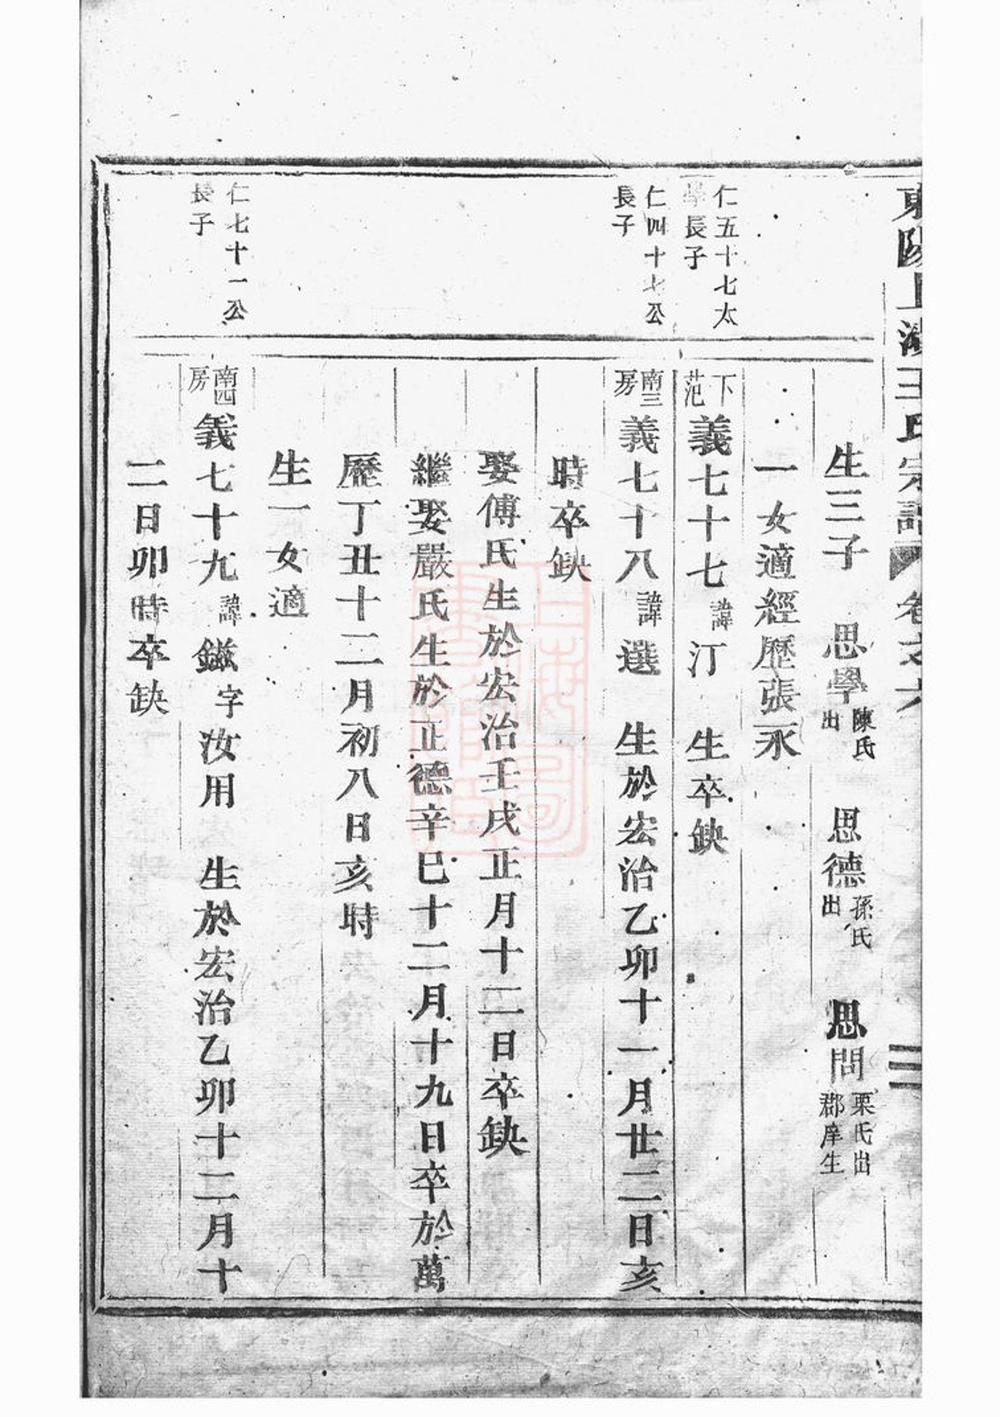 東陽上湖王氏宗譜 卷之六
生三子 思學陳氏出 思德孫氏出 思問栗氏出郡庠生
一女適經歷張永
仁五十七太學長子
下范 義七十七諱汀 生卒缺
仁四十七公長子
南三房 義七十八諱選 生於宏治乙卯十一月廿二日亥
時卒缺
娶傅氏生於宏治壬戌正月十二日卒缺
繼娶嚴氏生於正德辛巳十二月十九日卒於萬
歷丁丑十二月初八日亥時
生一女適
仁七十一公長子
南四房 義七十九諱鎡字汝用 生於宏治乙卯十二月十
二日卯時卒缺